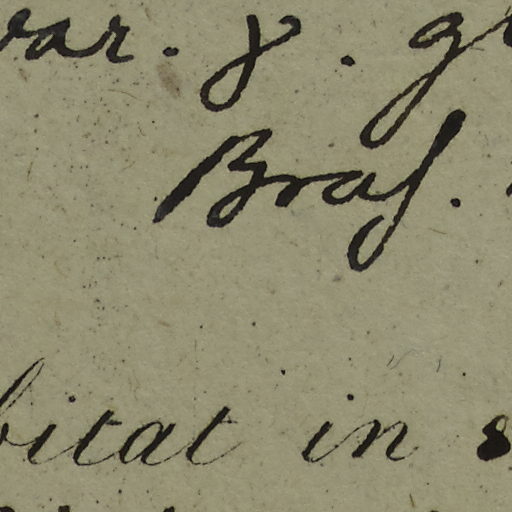 var. γ. g
Braſ.
bitat in s